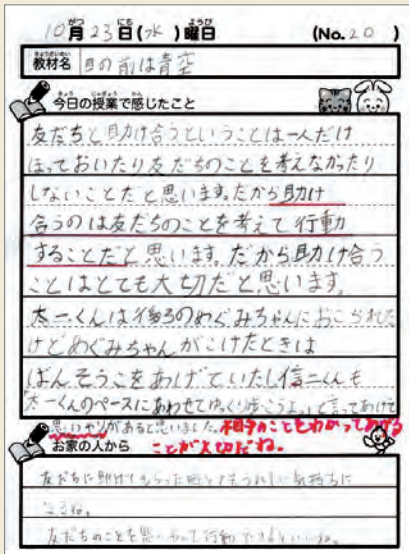 10月23日(水)曜日 (No.20)
教材名 目の前は青空
今日の授業で感じたこと
友だちと助け合うということは一人だけ
ほっておいたり友だちのことを考えなかったり
しないことだと思います。だから助け
合うのは友だちのことを考えて行動
することだと思います。だから助け合う
ことはとても大切だと思います。
太一くんは後ろのめぐみちゃんにおこられた
けどめぐみちゃんがこけたときは
ばんそうこをあげていたし信二くんも
「太一くんのペースにあわせてゆっくり歩こうよ」と言ってあげて
思いやりがあると思いました。相手のことをわかってあげる
ことが大切だね。
お家の人から
友だちに助けてもらった時とてもうれしい気持ちに
なるね。
友だちのことを思いやって行動できるといいね。